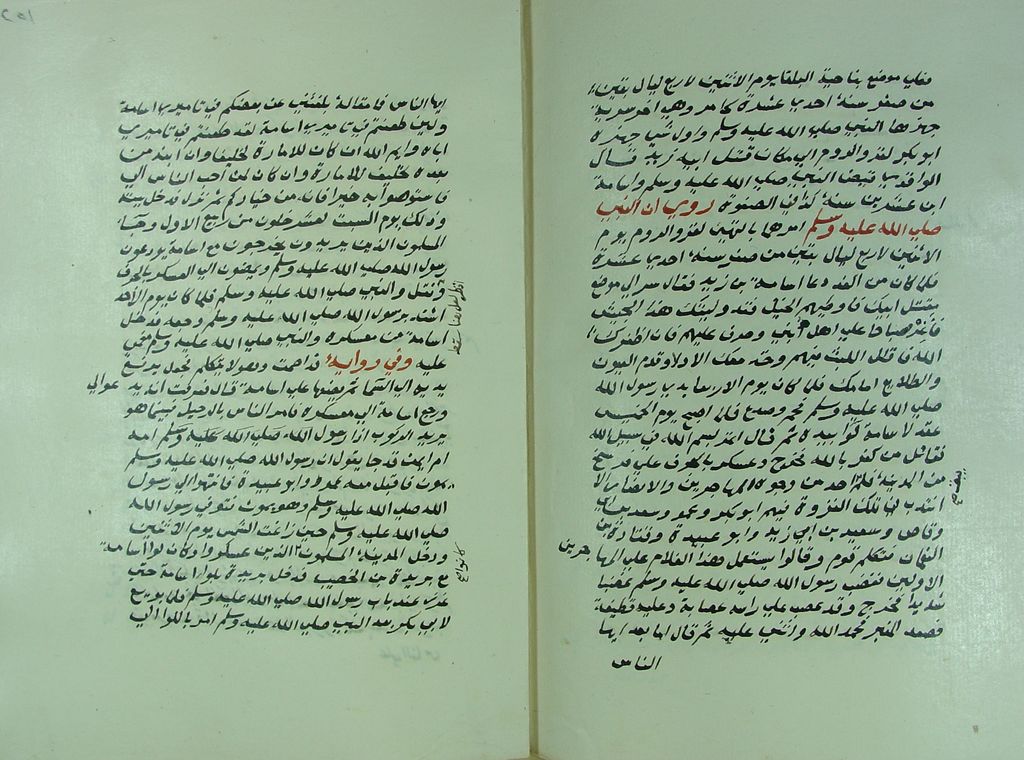 فعلي موضع بناحية البلقا يوم الاثنين لاربع ليال بقين
من صفر سنة احدي عشرة كامر وهي اخر سرية
جهزها النبي صلي الله عليه وسلم واول شي جهزه
ابو بكر لغزو الروم الي مكان قتل ابيه زيد قال
الواقدي قبض النبي صلي الله عليه وسلم واسامة
ابن عشرين سنة كذا في الصفوة روي ان النبي
صلي الله عليه وسلم امرهم بالتهيئ لغزو الروم يوم
الاثنين لاربع ليال بقين من صفر سنة احدي عشرة
فلما كان من الغد دعا اسامة بن زيد فقال سر الي موضع
مقتل ابيك فاوطيهم الخيل فقد وليتك هذا الجيش
فأغر صباحا علي اهل أبني وحرق عليهم فان اظفرك
الله فاقلل اللبث فيهم وخذ معك الادلاء وقدم العيون
والطلايع امامك فلما كان يوم الاربعا بدي برسول الله
صلي الله عليه وسلم فحم وصدع فلما اصبح يوم الخميس
عقد لاسامة لوآ بيده ثم قال اغز بسم الله في سبيل الله
فقاتل من كفر بالله فخرج وعسكر بالجرف علي فرسخ
من المدينة فلم احد من وجوه المهاجرين والانصار الا
انتدب لتلك الغزوة فيهم ابو بكر وعمر وسعد بن ابي
وقاص وسعيد بن ابي زيد وابو عبيدة وقتادة بن
النعمان فتكلم قوم وقالوا يستعمل هذا الغلام علي المهاجرين
الاولين فغضب رسول الله صلي الله عليه وسلم غضبا
شديدا فخرج وقد عصب علي راسه عصابة وعليه قطيفة
فصعد المنبر فحمد الله واثني عليه ثم قال اما بعد ايها
الناس
ايها الناس فما مقالة بلغتني عن بعضكم في تاميري اسامة
ولين طعنتم في تاميري اسامة لقد طعنتم في تاميري
اباه وايم الله ان كان للامارة لخليقا وان ابنه من
بعده لخليق للامارة وان كان لمن احب الناس الي
فاستوصوا به خيرا فانه من خياركم ثم نزل فدخل بيته
وذلك يوم السبت لعشر خلون من ربيع الاول وجا
المسلمون الذين يريدون يخرجون مع اسامة يودعون
رسول الله صلي الله عليه وسلم ويمضون الي العسكر بالجرف
وثقل النبي صلي الله عليه وسلم فلما كان يوم الاحد
اشتد برسول الله صلي الله عليه وسلم وجعه فدخل
اسامة من معسكره والنبي صلي الله عليه وسلم مغمي
عليه وفي رواية قد اصمت وهو لا يتكلم فجعل يرفع
يديه الي السما ثم يضعها علي اسامة قال فعرفت انه يدعوالي
ورجع اسامة الي معسكره فامر الناس بالرحيل فبينما هو
يريد الركوب اذا رسول الله صلي الله عليه وسلم امه
ام ايمن قد جا يقول ان رسول الله صلي الله عليه وسلم
يموت فاقبل معه عمر وابو عبيدة فانتهوا الي رسول
الله صلي الله عليه وسلم وهو يموت فتوفي رسول الله
صلي الله عليه وسلم حين زاغت الشمس يوم الاثنين
ودخل المدينة المسلمون الذين عسكروا وكان لوا اسامة
مع بريدة بن الحصيب فدخل بريدة بلوا اسامة حتي
غرزه عند باب رسول الله صلي الله عليه وسلم فلما بويع
لابي بكر بعد النبي صلي الله عليه وسلم امر باللوا الي